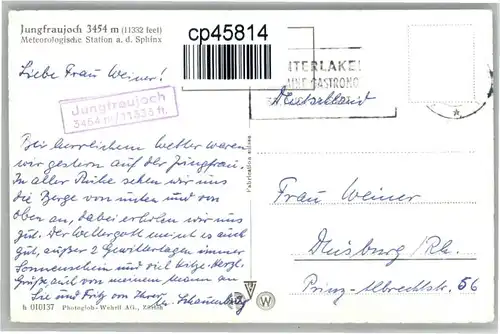 Jungfraujoch 3454 m (11332 feet)
Meteorologische Station a. d. Sphinx
cp45814
INTERLAKEN
GASTRONO
Liebe Frau Weiner!
Deutschland
Jungfraujoch
3454 m/11333 ft.
Bei herrlichem Wetter waren
wir gestern auf der Jungfrau.
In aller Ruhe sehen wir uns
die Berge von unten und von
oben an, dabei erholen wir uns
gut. Der Wettergott meint es auch
gut, außer 2 Gewittertagen immer
Sonnenschein und viel Hitze. Herzl.
Grüße auch von meinem Mann an
Sie und Fritz von Ihrer
Schauenburg
Frau Weiner
Duisburg/Rh.
Prinz-Albrechtstr. 56
h 010137 Photoglob-Wehrli AG, Zürich
W